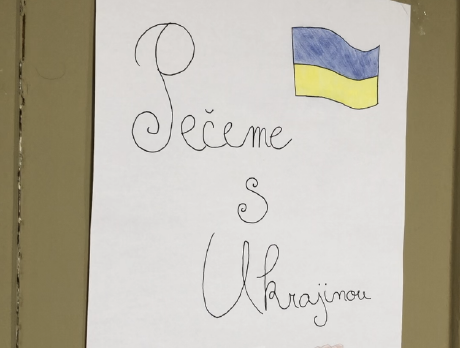 Pečeme
s
Ukrajinou